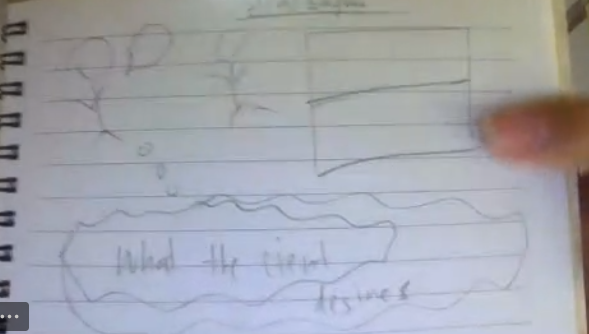 What the client
desires